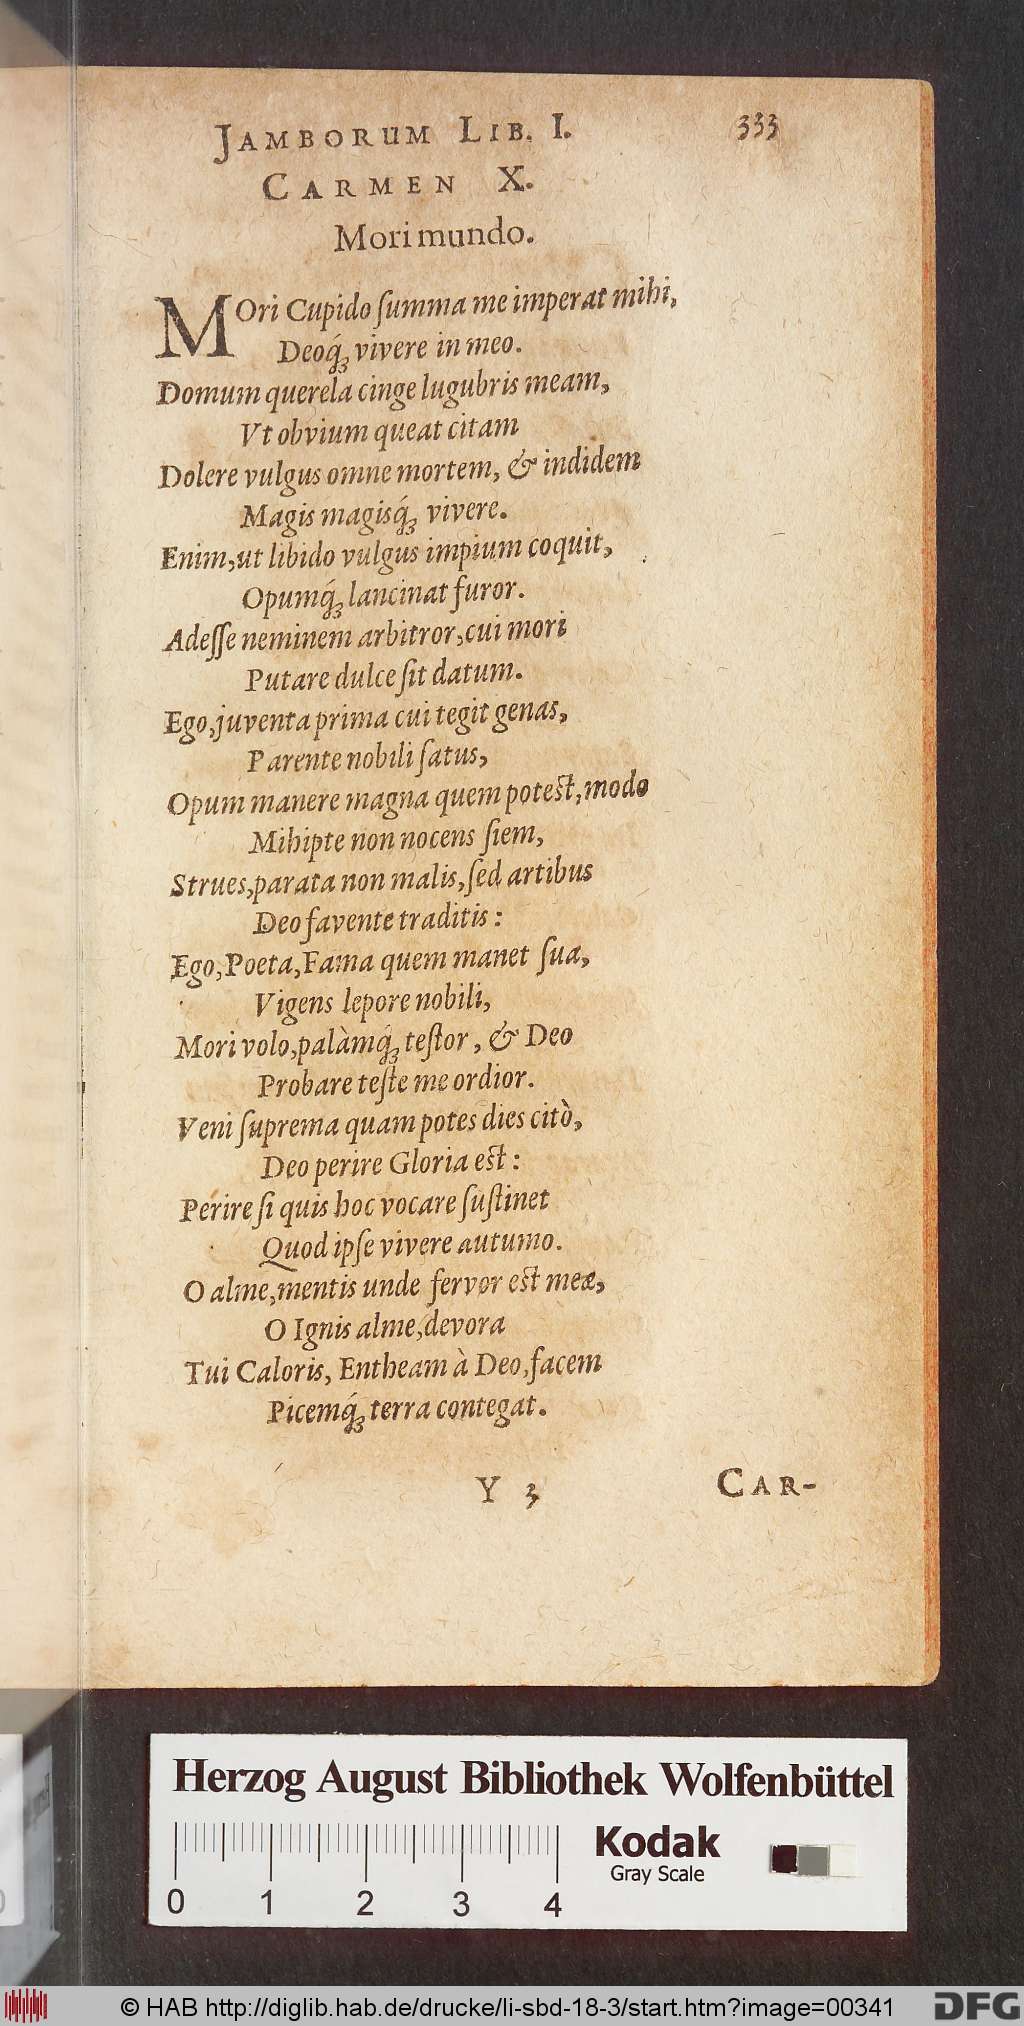 JAMBORUM LIB. I. 333
CARMEN X.
Mori mundo.
MOri Cupido ſumma me imperat mihi,
Deoq́ꝫ vivere in meo.
Domum querela cinge lugubris meam,
Vt obvium queat citam
Dolere vulgus omne mortem, & indidem
Magis magisq́ꝫ vivere.
Enim, ut libido vulgus impium coquit,
Opumq́ꝫ lancinat furor.
Adeſſe neminem arbitror, cui mori
Putare dulce ſit datum.
Ego, juventa prima cui tegit genas,
Parente nobili ſatus,
Opum manere magna quem poteſt, modo
Mihipte non nocens ſiem,
Strues, parata non malis, ſed artibus
Deo favente traditis:
Ego, Poeta, Fama quem manet ſua,
Vigens lepore nobili,
Mori volo, palàmq́ꝫ teſtor, & Deo
Probare teſte me ordior.
Veni ſuprema quam potes dies citò,
Deo perire Gloria eſt:
Perire ſi quis hoc vocare ſuſtinet
Quod ipſe vivere autumo.
O alme, mentis unde fervor eſt meæ,
O Ignis alme, devora
Tui Caloris, Entheam à Deo, facem
Picemq́ꝫ terra contegat.
Y 3 CAR-
Herzog August Bibliothek Wolfenbüttel
Kodak
Gray Scale
0 1 2 3 4
© HAB http://diglib.hab.de/drucke/li-sbd-18-3/start.htm?image=00341
DFG